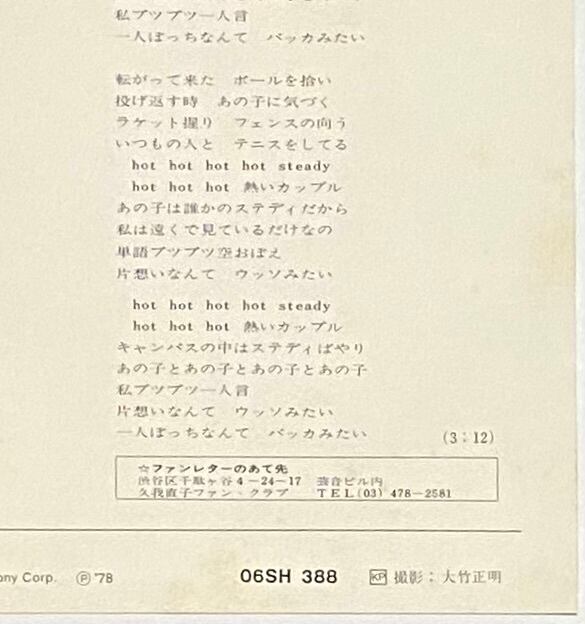 私ブツブツ一人言
一人ぼっちなんて　バッカみたい
転がって来た　ボールを拾い
投げ返す時　あの子に気づく
ラケット握り　フェンスの向う
いつもの人と　テニスをしてる
hot hot hot hot steady
hot hot hot 熱いカップル
あの子は誰かのステディだから
私は遠くで見ているだけなの
単語ブツブツ空おぼえ
片想いなんて　ウッソみたい
hot hot hot hot steady
hot hot hot 熱いカップル
キャンパスの中はステディばやり
あの子とあの子とあの子とあの子
私ブツブツ一人言
片想いなんて　ウッソみたい
一人ぼっちなんて　バッカみたい　(3:12)
☆ファンレターのあて先
渋谷区千駄ヶ谷4－24－17　芸音ビル内
久我直子ファン・クラブ　TEL(03) 478－2581
ony Corp.　Ⓟ'78　06SH 388　KP 撮影：大竹正明